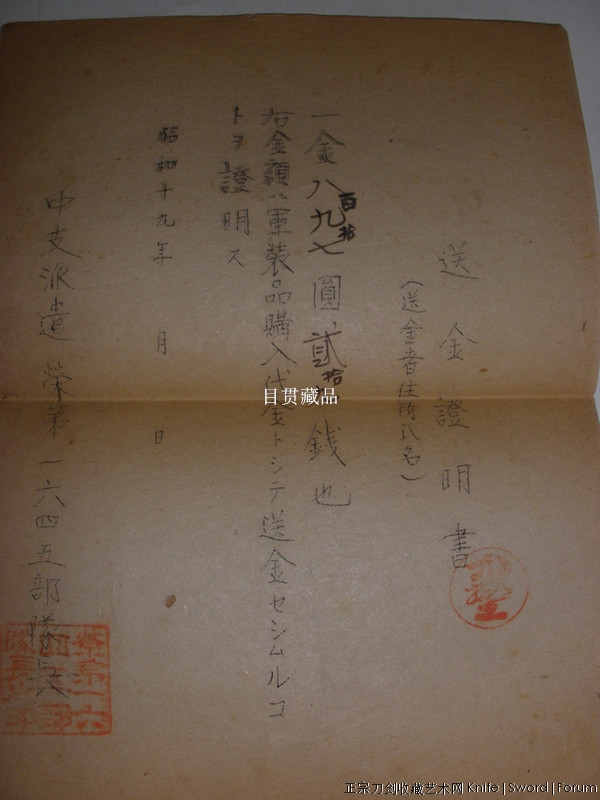 送金證明書
(送金者住所氏名)
一金八百九拾七圓貳拾銭也
右金額ハ軍装品購入代金トシテ送金セシムルコ
トヲ證明ス
昭和十九年 月 日
中支派遣 榮第一六四五部隊長
目贯藏品
正宗刀剑收藏艺术网 Knife | Sword | Forum